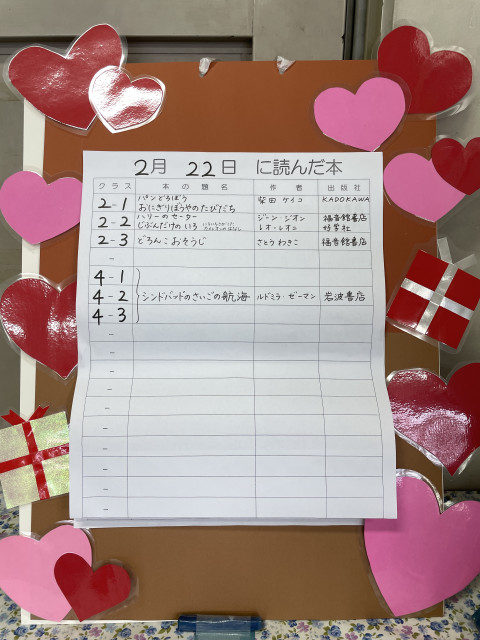 2月 22日 に読んだ本
クラス 本の題名 作者 出版社
2-1 パンどろぼう 柴田 ケイコ KADOKAWA
おにぎりぼうやのたびだち
2-2 ハリーのセーター ジーン・ジオン 福音館書店
じぶんだけのいろ いろいろさがした カメレオンのはなし レオ・レオニ 好学社
2-3 どろんこおそうじ さとう わきこ 福音館書店
-
4-1
4-2 シンドバッドのさいごの航海 ルドミラ・ゼーマン 岩波書店
4-3
-
-
-
-
-
-
-
-
-